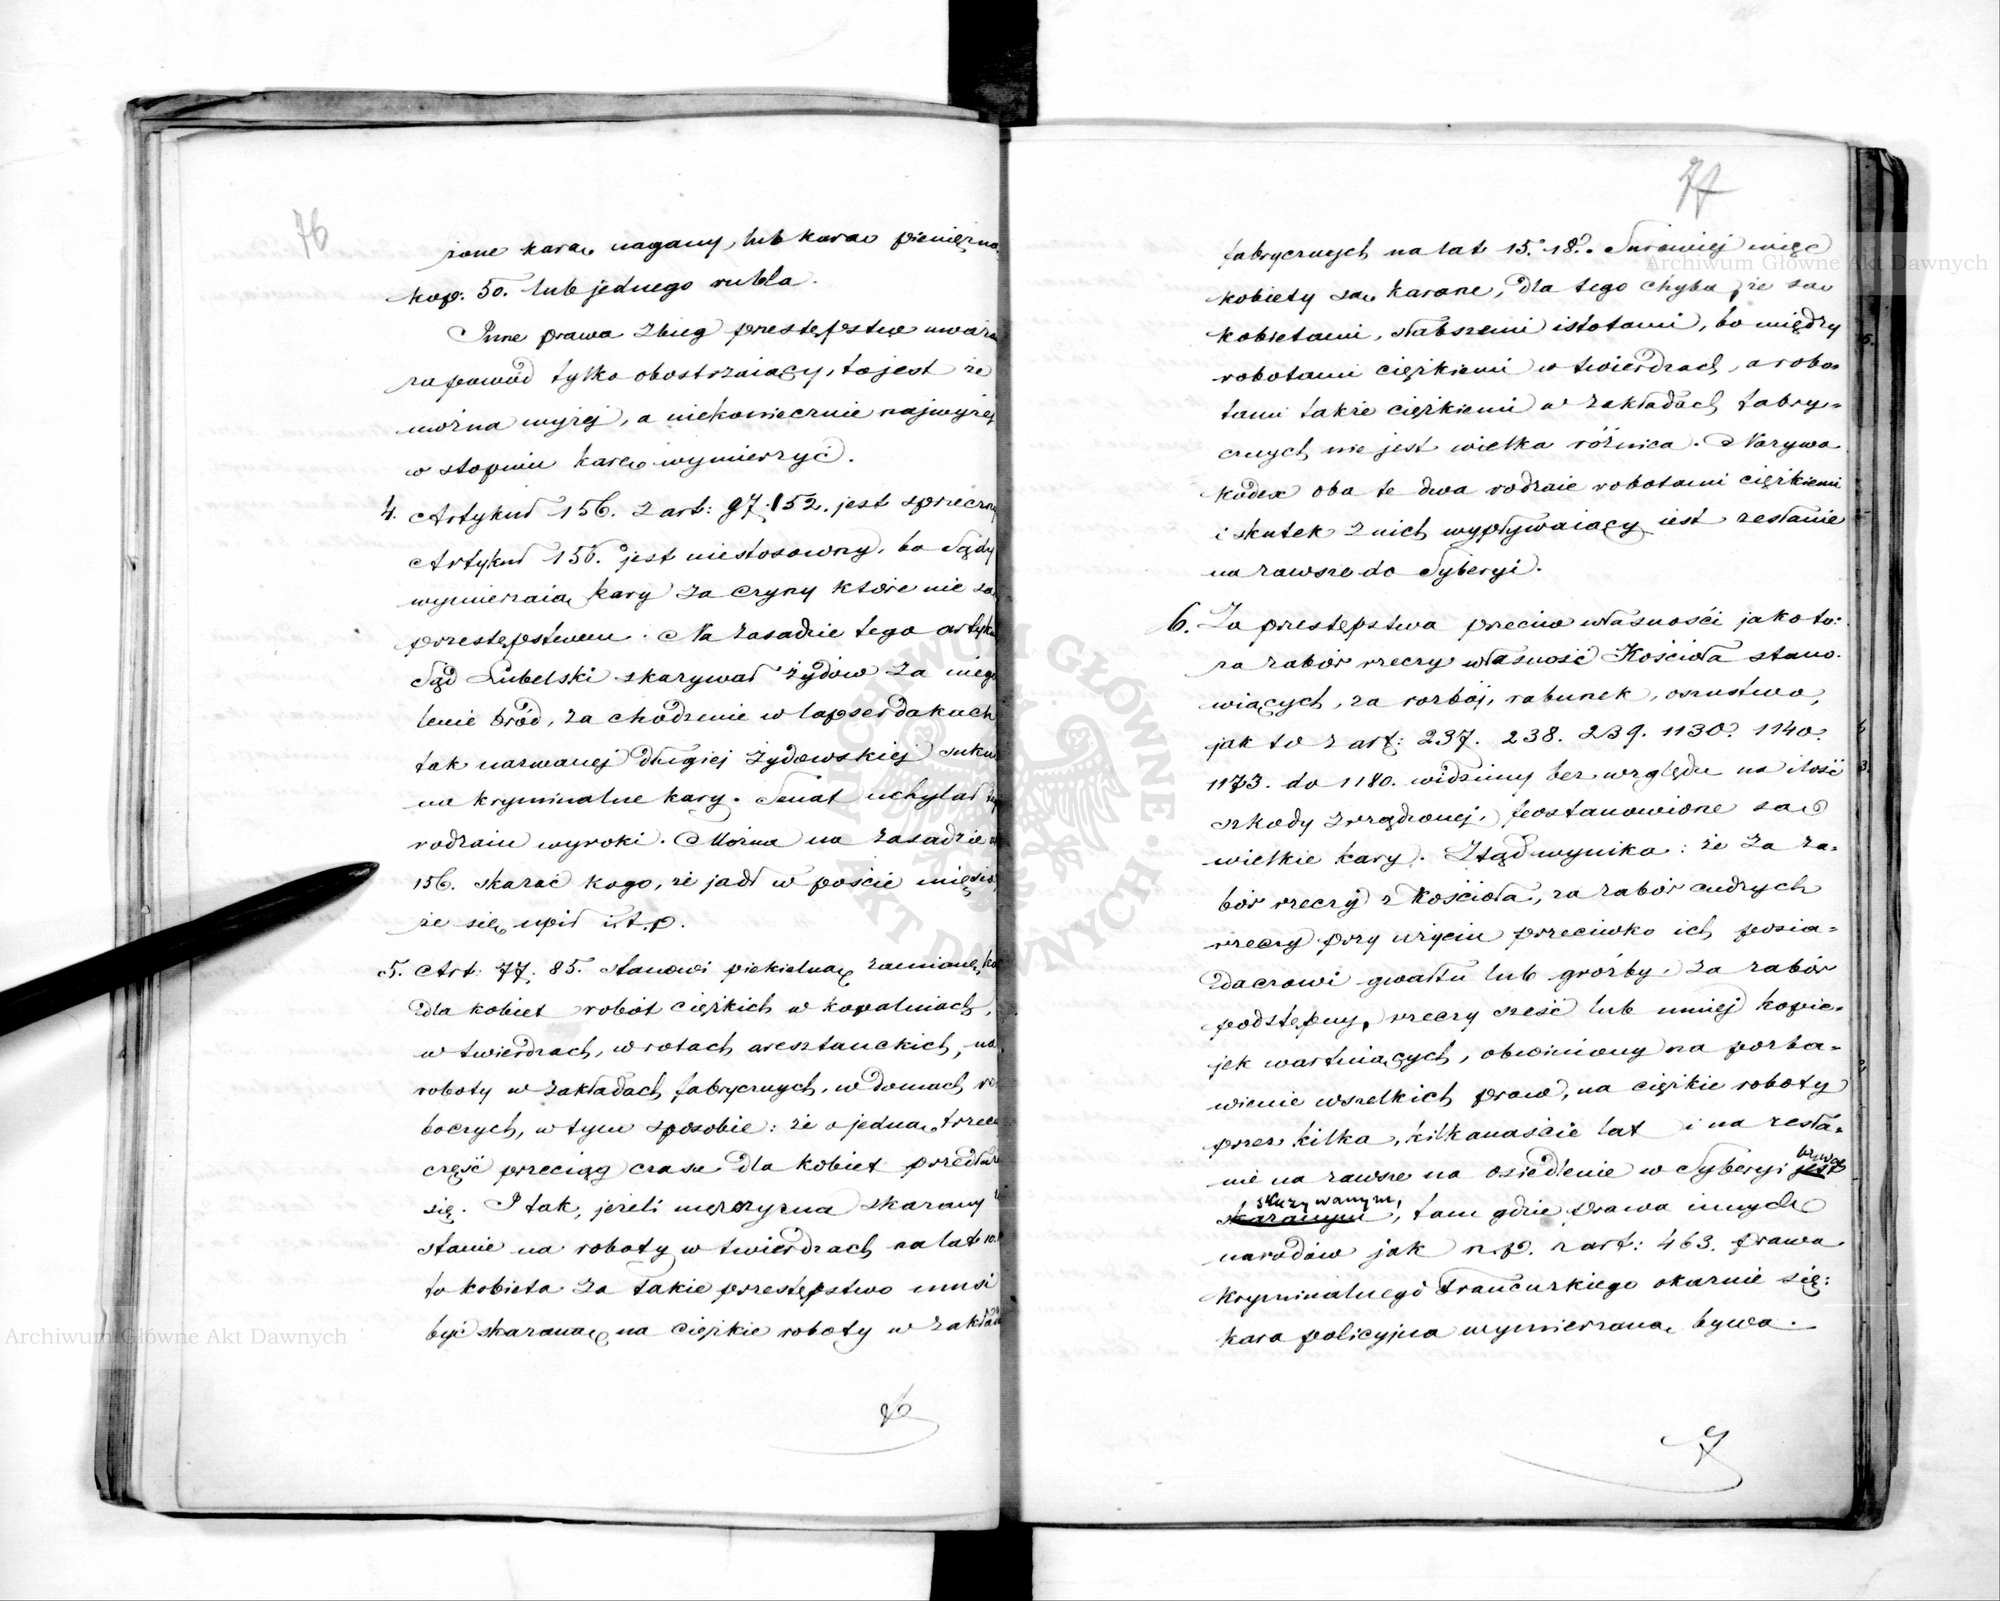 76
żone karą nagany, lub karą pieniężną
kop: 50. lub jednego rubla.
Inne prawa zbieg przestępstw uważa
za powód tylko obostrzaiący, to jest że
można wyżej, a niekoniecznie najwyżej
w stopniu karę wymierzyć.
4. Artykuł 156. z art: 97. 152. jest sprzeczny
Artykuł 156. jest niestosowny, bo Sądy
wymierzaią kary za czyny które nie są
przestępstwem. Na zasadzie tego artyku
Sąd Lubelski skazywał żydów za niego
lenie bród, za chodzenie w łapserdakach
tak nazwanej długiej żydowskiej sukni
na kryminalne kary. Senat uchylał
rodzaiu wyroki. Można na zasadzie
156. skazać kogo, że jadł w poście mięsio,
że się upił i t. p.
5. Art: 77. 85. stanowi piekielną zamianę
dla kobiet robót ciężkich w kopalniach,
w twierdzach, w rotach aresztanckich, na
roboty w zakładach fabrycznych, w domach ro
boczych, w tym sposobie: że o jedną trzecią
część przeciąg czasu dla kobiet przedłuża
się. I tak, jeżeli mężczyzna skazany
stanie na roboty w twierdzach na lat 10.
to kobieta za takie przestępstwo musi
być skazaną na ciężkie roboty w zakład
76
77
fabrycznych na lat 15. 18. Surowiej więc
kobiety są karane, dla tego chyba że są
kobietami, słabszemi istotami, bo między
robotami ciężkiemi w twierdzach, a robo
tami także ciężkiemi w zakładach fabry=
cznych nie jest wielka różnica. Nazywa
kodex oba te dwa rodzaie robotami ciężkiemi
i skutek z nich wypływaiący iest zesłanie
na zawsze do Syberyi.
6. Za przestępstwa przeciw własności jako to:
za zabór rzeczy własność Kościoła stano.
wiących, za rozbój, rabunek, oszustwo,
jak to z art: 237. 238. 239. 1130. 1140.
1173. do 1180. widzimy bez względu na ilość
szkody zrządzonej, postanowione są
wielkie kary. Ztąd wynika: że za za=
bór rzeczy z Kościoła, za zabór cudzych
rzeczy przy użyciu przeciwko ich posia=
daczowi gwałtu lub groźby, za zabór
podstępny, rzeczy sześć lub mniej kopie=
jek wartuiących, obwiniony na pozba=
wienie wszelkich praw, na ciężkie roboty
przez kilka, kilkanaście lat i na zesła=
nie na zawsze na osiedlenie w Syberyi jest bywa
skazanym skazywanym, tam gdzie prawa innych
narodów jak n.p. z art: 463. prawa
kryminalnego francuzkiego okaznie się:
kara policyjna wymierzaną bywa.
7
Archiwum Główne Akt Dawnych
ARCHIWUM GŁÓWNE AKT DAWNYCH
Archiwum Główne Akt Dawnych